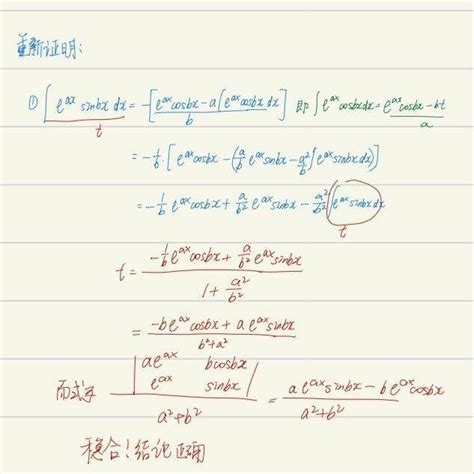 重新证明:
① ∫e^{ax} sinbx dx = -[e^{ax}cosbx - a∫e^{ax}cosbx dx]/b 即 ∫e^{ax}cosbxdx = (e^{ax}cosbx - bt)/a
t
= -1/b · [e^{ax}cosbx - (a/b e^{ax}sinbx - a²/b ∫e^{ax}sinbxdx)]
= -1/b e^{ax}cosbx + a/b² e^{ax}sinbx - a²/b² ∫e^{ax}sinbxdx
t
t = (-1/b e^{ax}cosbx + a/b² e^{ax}sinbx)/(1 + a²/b²)
= (-be^{ax}cosbx + ae^{ax}sinbx)/(b²+a²)
而式子 |ae^{ax} bcosbx
e^{ax} sinbx|/(a²+b²) = (ae^{ax}sinbx - be^{ax}cosbx)/(a²+b²)
稳合!结论正确